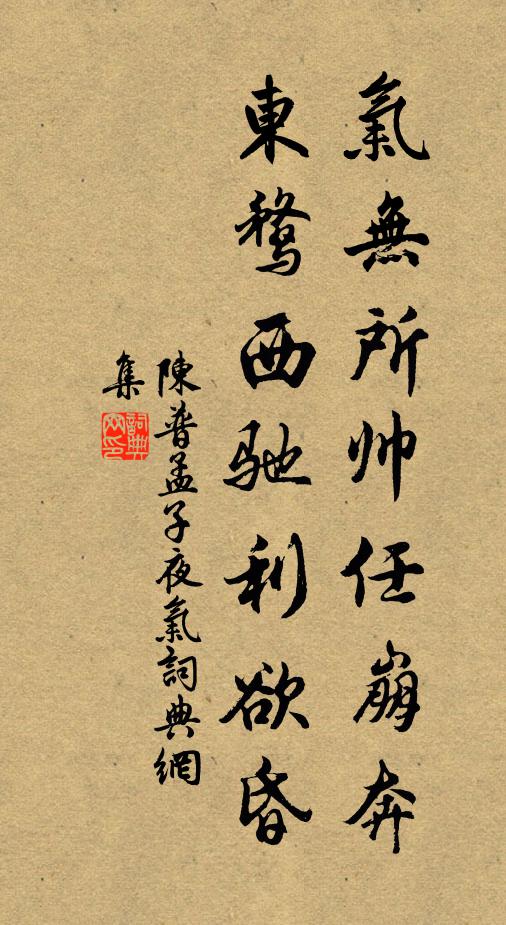 氣無所帅任崩奔
東鶩西驰利欲昏
陳普孟子夜氣詞典網
集
詞典网印